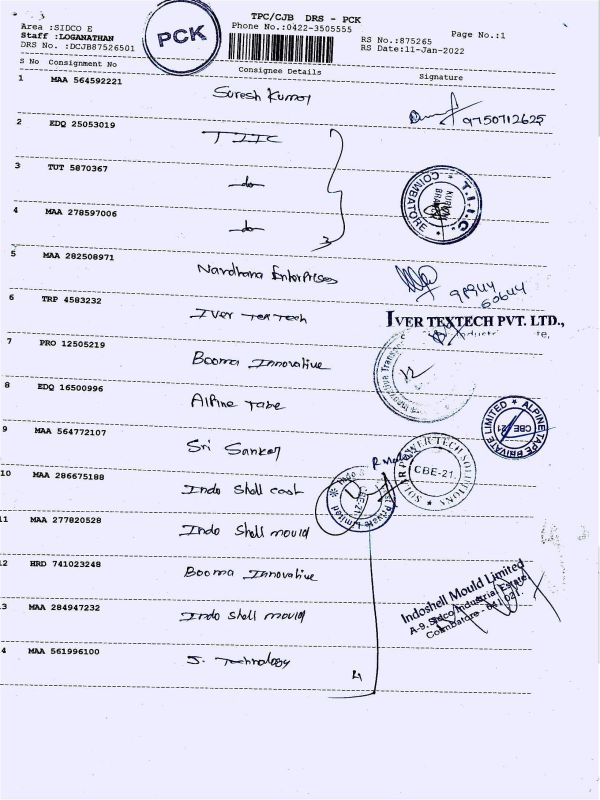 TPC/CJB DRS - PCK
Area :SIDCO E
Phone No.:0422-3505555
Page No.:1
Staff :LOGANATHAN
PCK
RS No.:875265
DRS No. :DCJB87526501
RS Date:11-Jan-2022
S No Consignment No Consignee Details Signature
1 MAA 564592221 Suresh Kumar 9750712625
2 EDQ 25053019 TIIC
3 TUT 5870367 do
T.I.I.C. COIMBATORE
4 MAA 278597006 do
3
5 MAA 282508971 Nardhana Enterprises
6 TRP 4583232 Iver Tex Tech
IVER TEXTECH PVT. LTD.,
7 PRO 12505219 Booma Innovative
8 EDQ 16500996 Alpine Tape
ALPINE TAPE PRIVATE LIMITED CBE-21
9 MAA 564772107 Sri Sankar
SOLAR POWER TECH SOLUTIONS CBE-21.
10 MAA 286675188 Indo Shell cast
Private Limited
11 MAA 277820528 Indo Shell mould
12 HRD 741023248 Booma Innovative
Indoshell Mould Limited
A-9, Sidco Industrial Estate
Coimbatore - 641 021.
13 MAA 284947232 Indo Shell mould
4 MAA 561996100 S. Technology
4